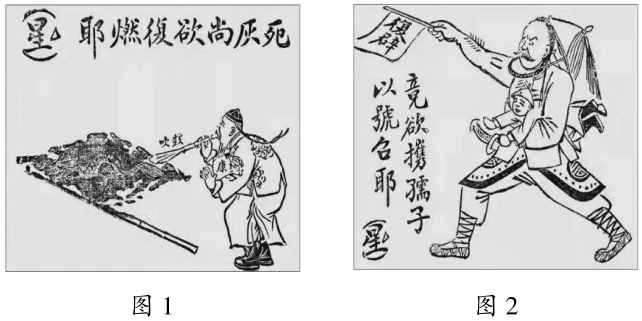 死灰尚欲復燃耶
星
鼓吹
康
图 1
復辟
竟欲攜孺子
以號召耶
星
图 2